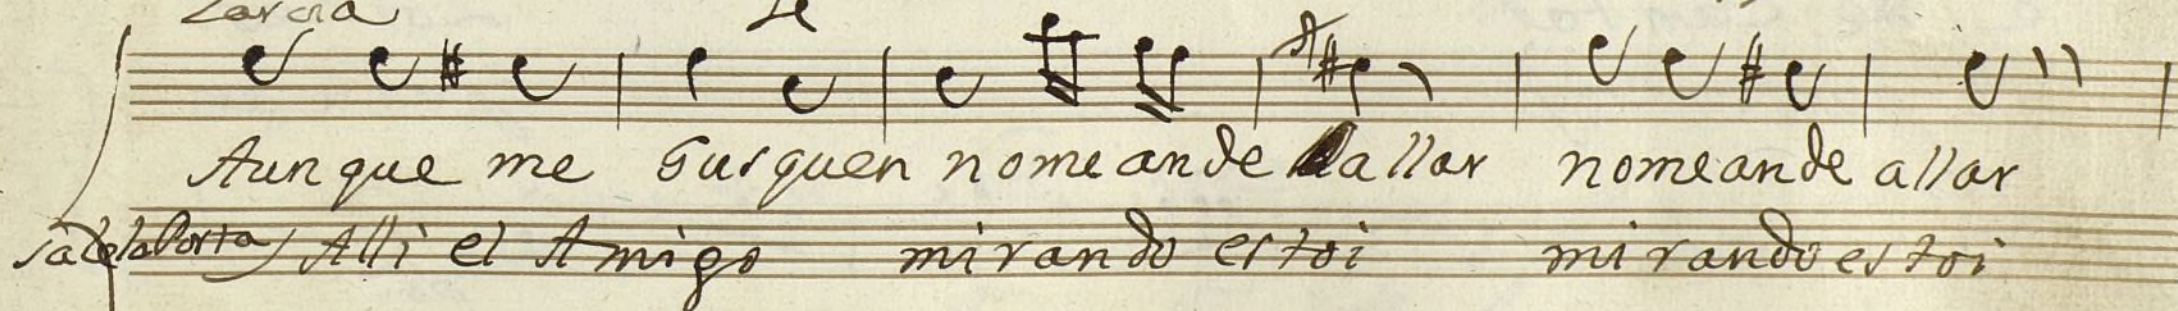 Garcia Le
Aunque me Busquen nomeande allar nomeande allar
Sa de la Porta Alli el Amigo mirando estoi mirando estoi